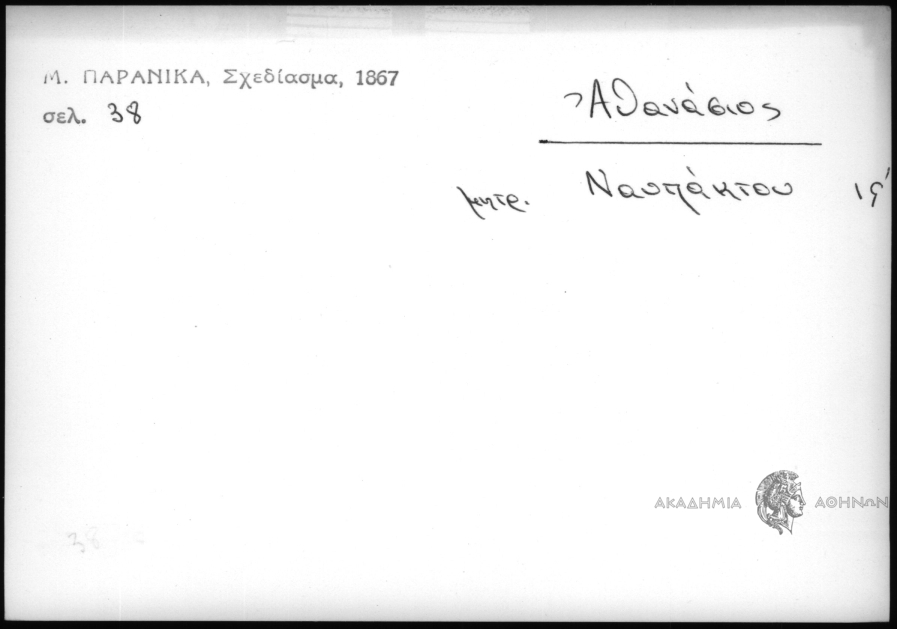 Μ. ΠΑΡΑΝΙΚΑ, Σχεδίασμα, 1867
σελ. 38
Ἀθανάσιος
μητρ. Ναυπάκτου ις'
38
ΑΚΑΔΗΜΙΑ ΑΘΗΝΩΝ